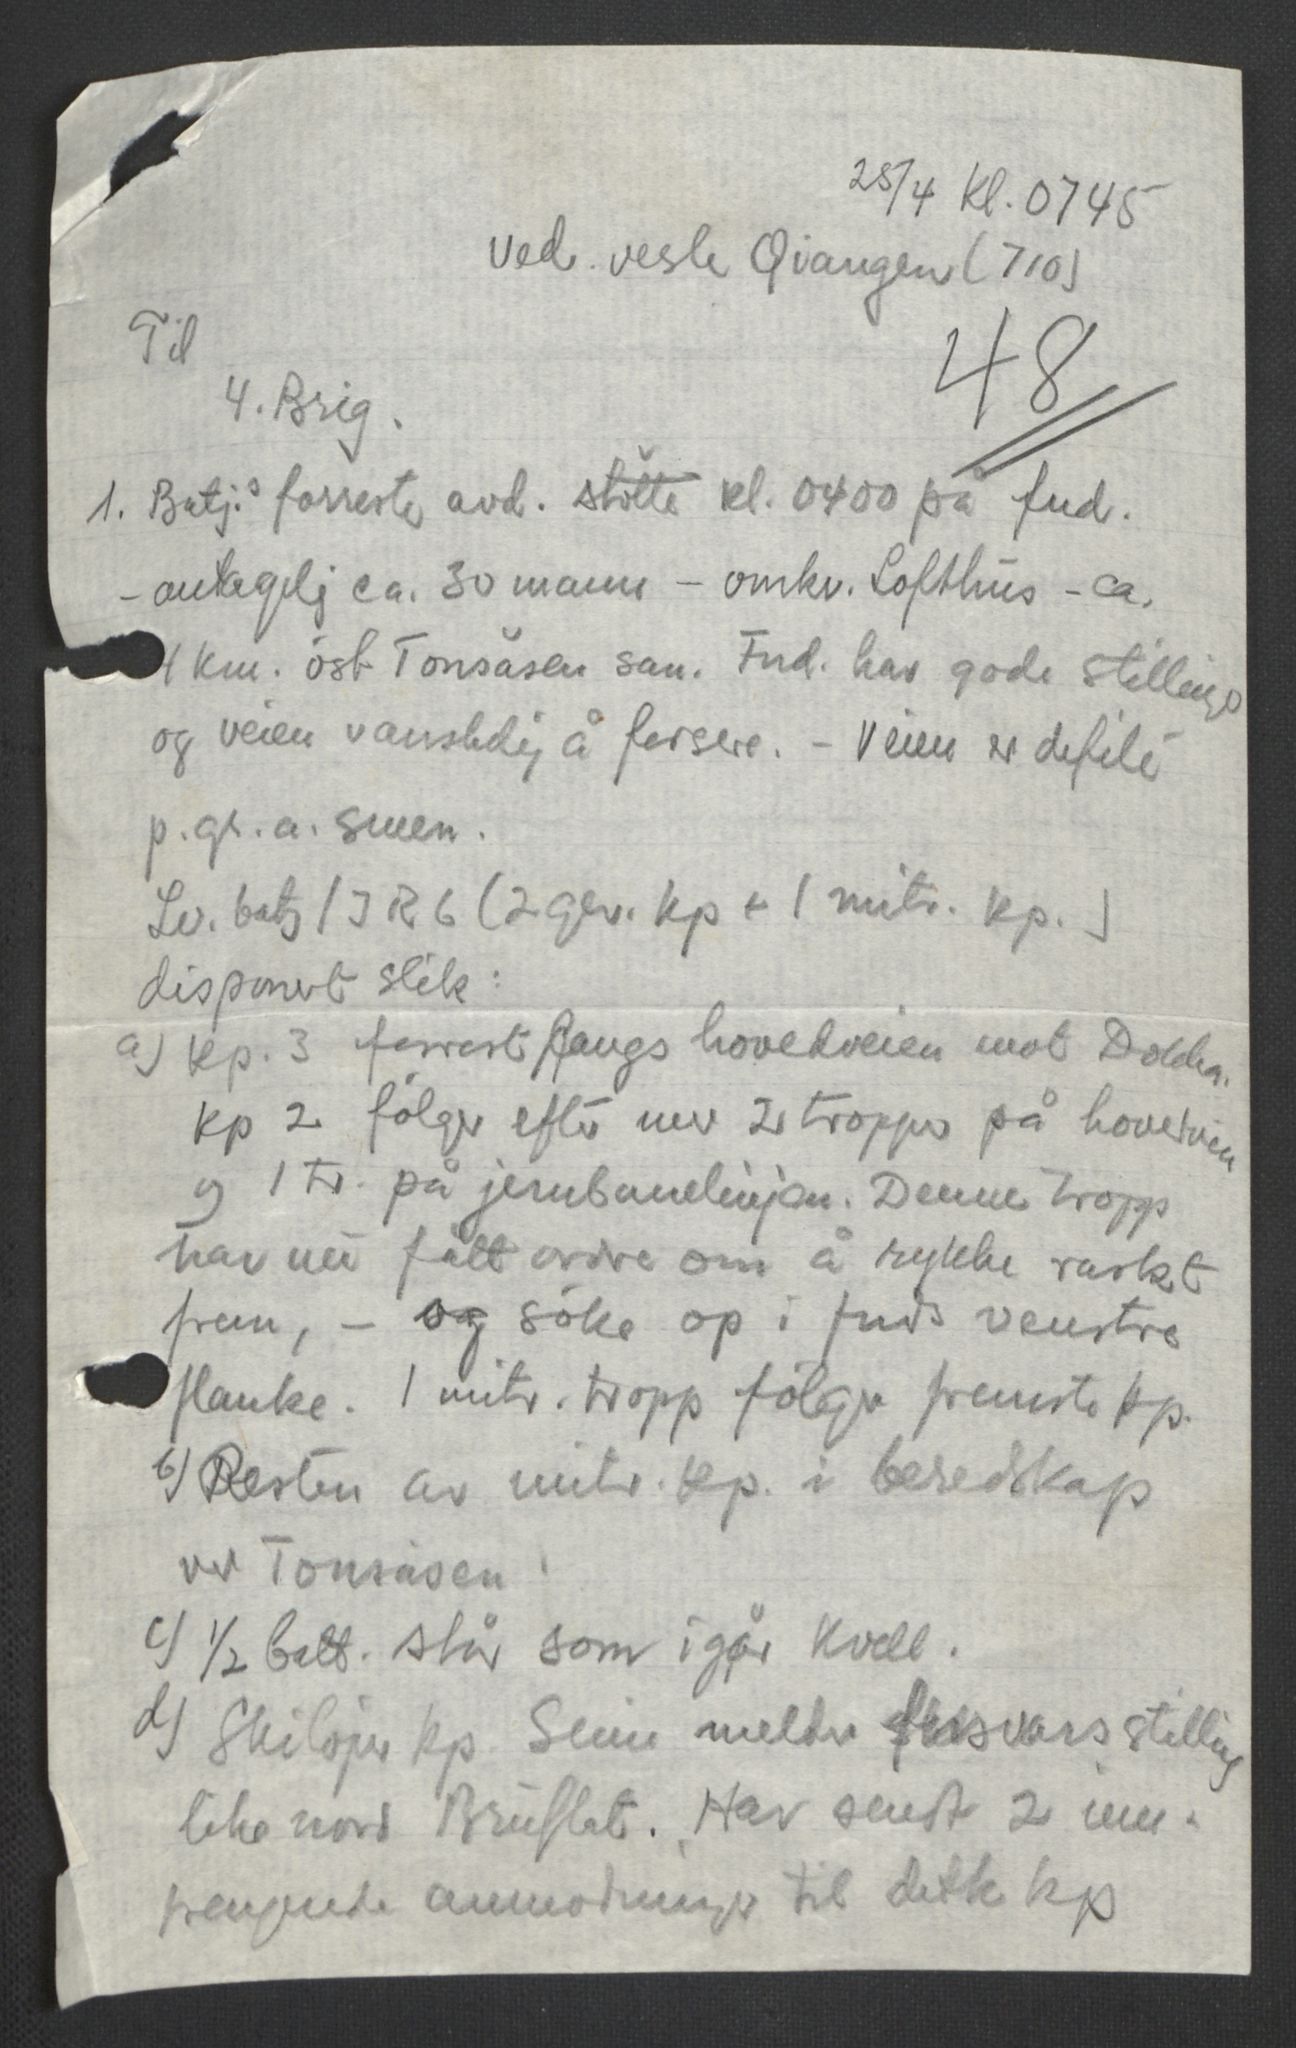 25/4 Kl. 0745
Ved. vesle Qvangen (710)
48
Til
4. Brig.
1. Batj.s forreste avd. støtte kl. 0400 på fnd.
- antagelig ca. 30 mann - omkr. Lofthus - ca.
4 km. öst Tonsåsen san. Fnd. har gode stillinger
og veien vanskelig å forsere. - Veien er defilé
p.gr.a. sneen.
Lv. batj / IR 6 (2 gev. kp + 1 mitr. kp.)
disponert slik:
a) Kp. 3 forrest langs hovedveien mot Dokka.
Kp 2 fölger efter med 2 tropper på hovedveien
og 1 tr. på jernbanelinjen. Denne tropp
har nu fått ordre om å rykke raskt
frem, - og söke op i fnds venstre
flanke. 1 mitr. tropp fölger fremste kp.
b) Resten av mitr. kp. i beredskap
ved Tonsåsen
c) 1/2 batt. står som igår kveld.
d) Skilöper kp. melder forsvarsstilling
like nord Bruflat. Har sendt 2 inn-
trengende anmodninger til dette kp